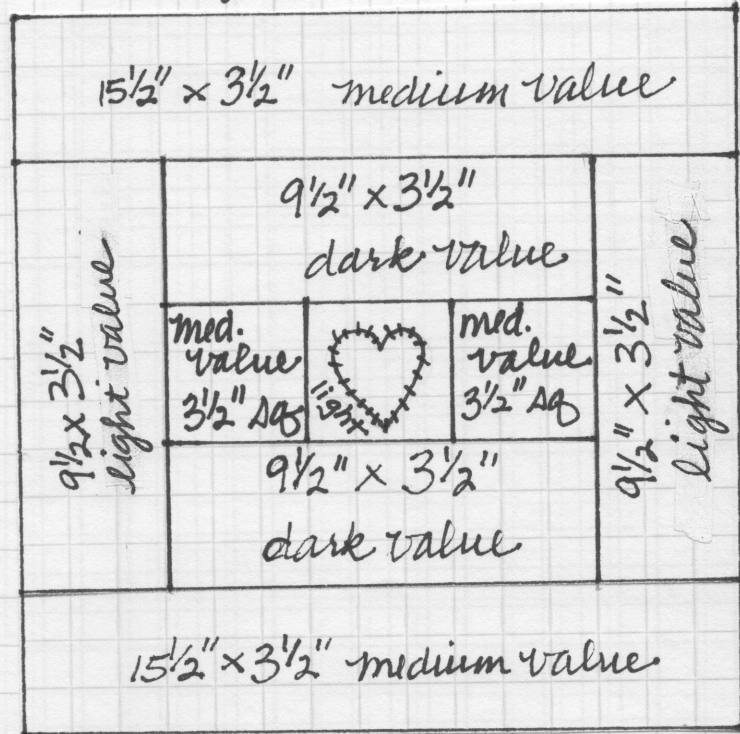 15½" x 3½" medium value
9½" x 3½"
dark value
9½ x 3½"
light value
med.
value
3½" sq
light
med.
value
3½" sq
9½" x 3½"
light value
9½" x 3½"
dark value
15½" x 3½" medium value